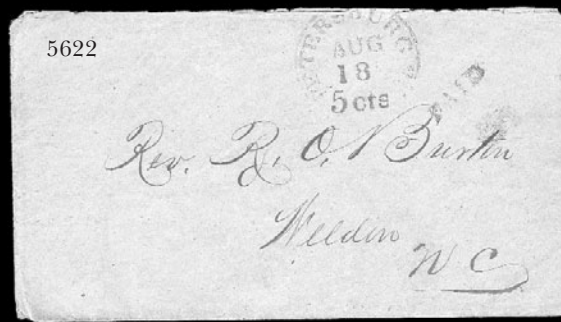 5622
PETERSBURG
AUG
18
5 cts
PAID
Rev. R. O. Burton
Weldon
N C